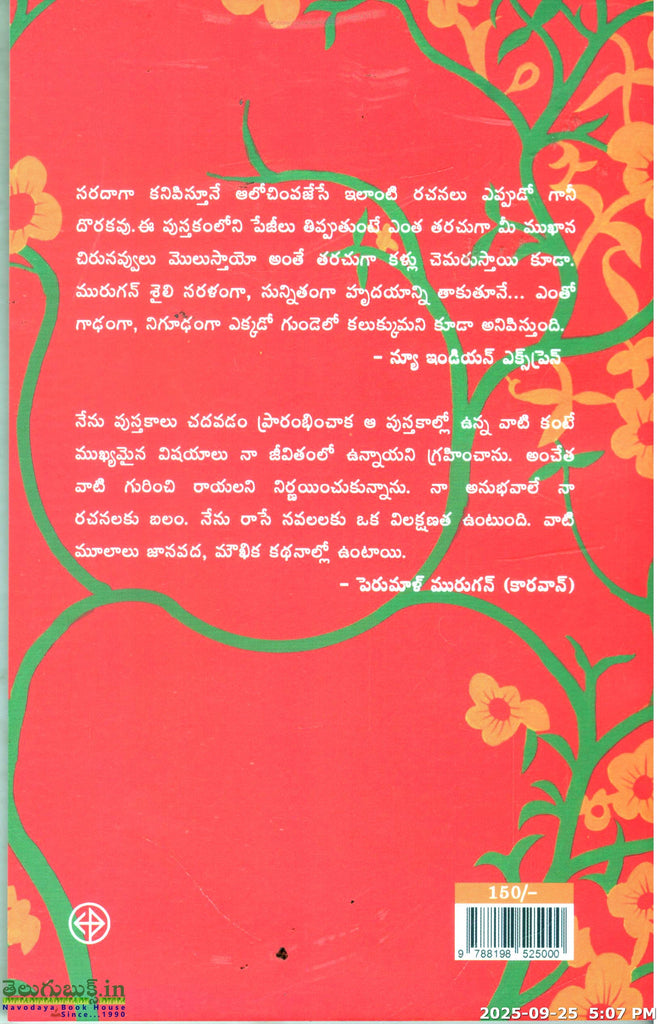 సరదాగా కనిపిస్తూనే ఆలోచింపజేసే ఇలాంటి రచనలు ఎప్పుడో గానీ
దొరకవు. ఈ పుస్తకంలోని పేజీలు తిప్పుతుంటే ఎంత తరచుగా మీ ముఖాన
చిరునవ్వులు మొలుస్తాయో అంతే తరచుగా కళ్లు చెమరుస్తాయి కూడా.
మురుగన్ శైలి సరళంగా, సున్నితంగా హృదయాన్ని తాకుతూనే... ఎంతో
గాఢంగా, నిగూఢంగా ఎక్కడో గుండెలో కలుక్కుమని కూడా అనిపిస్తుంది.
– న్యూ ఇండియన్ ఎక్స్‌ప్రెస్
నేను పుస్తకాలు చదవడం ప్రారంభించాక ఆ పుస్తకాల్లో ఉన్న వాటి కంటే
ముఖ్యమైన విషయాలు నా జీవితంలో ఉన్నాయని గ్రహించాను. అంచేత
వాటి గురించి రాయలని నిర్ణయించుకున్నాను. నా అనుభవాలే నా
రచనలకు బలం. నేను రాసే నవలలకు ఒక విలక్షణత ఉంటుంది. వాటి
మూలాలు జానపద, మౌఖిక కథనాల్లో ఉంటాయి.
– పెరుమాళ్ మురుగన్ (కారవాన్)
150/–
9 788198 525000
తెలుగుబుక్స్.in
Navodaya Book House
Since...1990
2025-09-25 5:07 PM